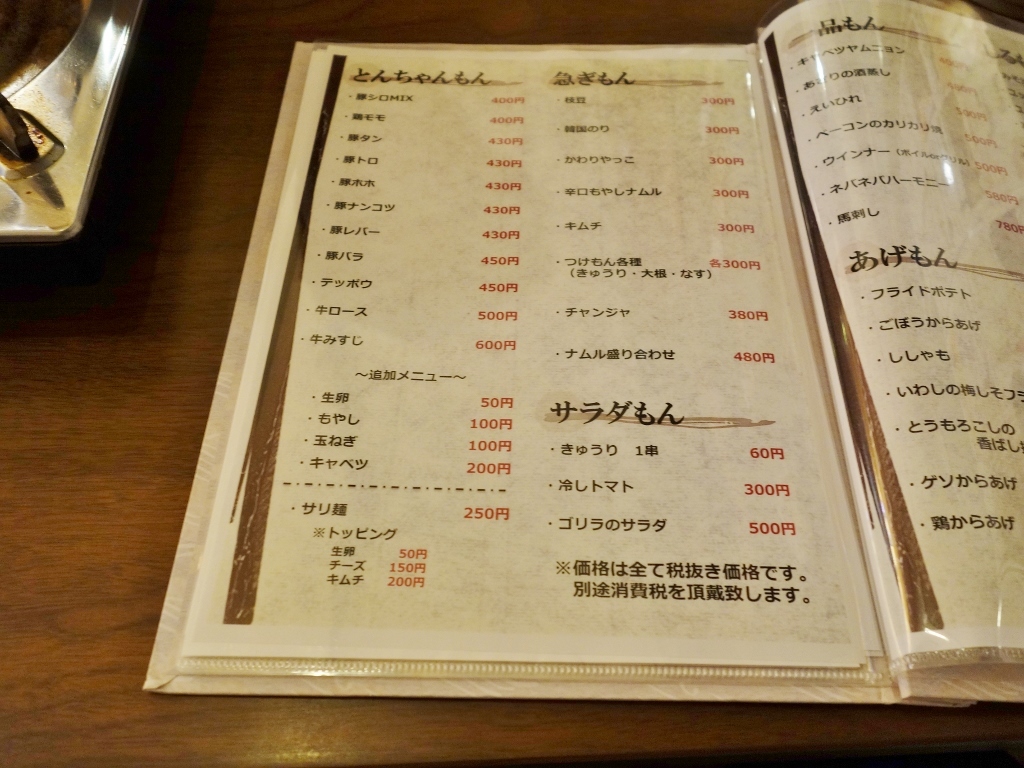 とんちゃんもん
・豚シロMIX 400円
・鶏モモ 400円
・豚タン 430円
・豚トロ 430円
・豚ホホ 430円
・豚ナンコツ 430円
・豚レバー 430円
・豚バラ 450円
・テッポウ 450円
・牛ロース 500円
・牛みすじ 600円
～追加メニュー～
・生卵 50円
・もやし 100円
・玉ねぎ 100円
・キャベツ 200円
・サリ麺 250円
※トッピング
生卵 50円
チーズ 150円
キムチ 200円
急ぎもん
・枝豆 300円
・韓国のり 300円
・かわりやっこ 300円
・辛口もやしナムル 300円
・キムチ 300円
・つけもん各種 各300円
（きゅうり・大根・なす）
・チャンジャ 380円
・ナムル盛り合わせ 480円
サラダもん
・きゅうり 1串 60円
・冷しトマト 300円
・ゴリラのサラダ 500円
※価格は全て税抜き価格です。
別途消費税を頂戴致します。
一品もん
・キャベツヤムニョン 400円
・あさりの酒蒸し
・えいひれ 500円
・ベーコンのカリカリ焼 500円
・ウインナー（ボイルorグリル） 500円
・ネバネバハーモニー 580円
・馬刺し 780円
あげもん
・フライドポテト
・ごぼうからあげ
・ししゃも
・いわしの梅しそフラ
・とうもろこしの
香ばし
・ゲソからあげ
・鶏からあげ